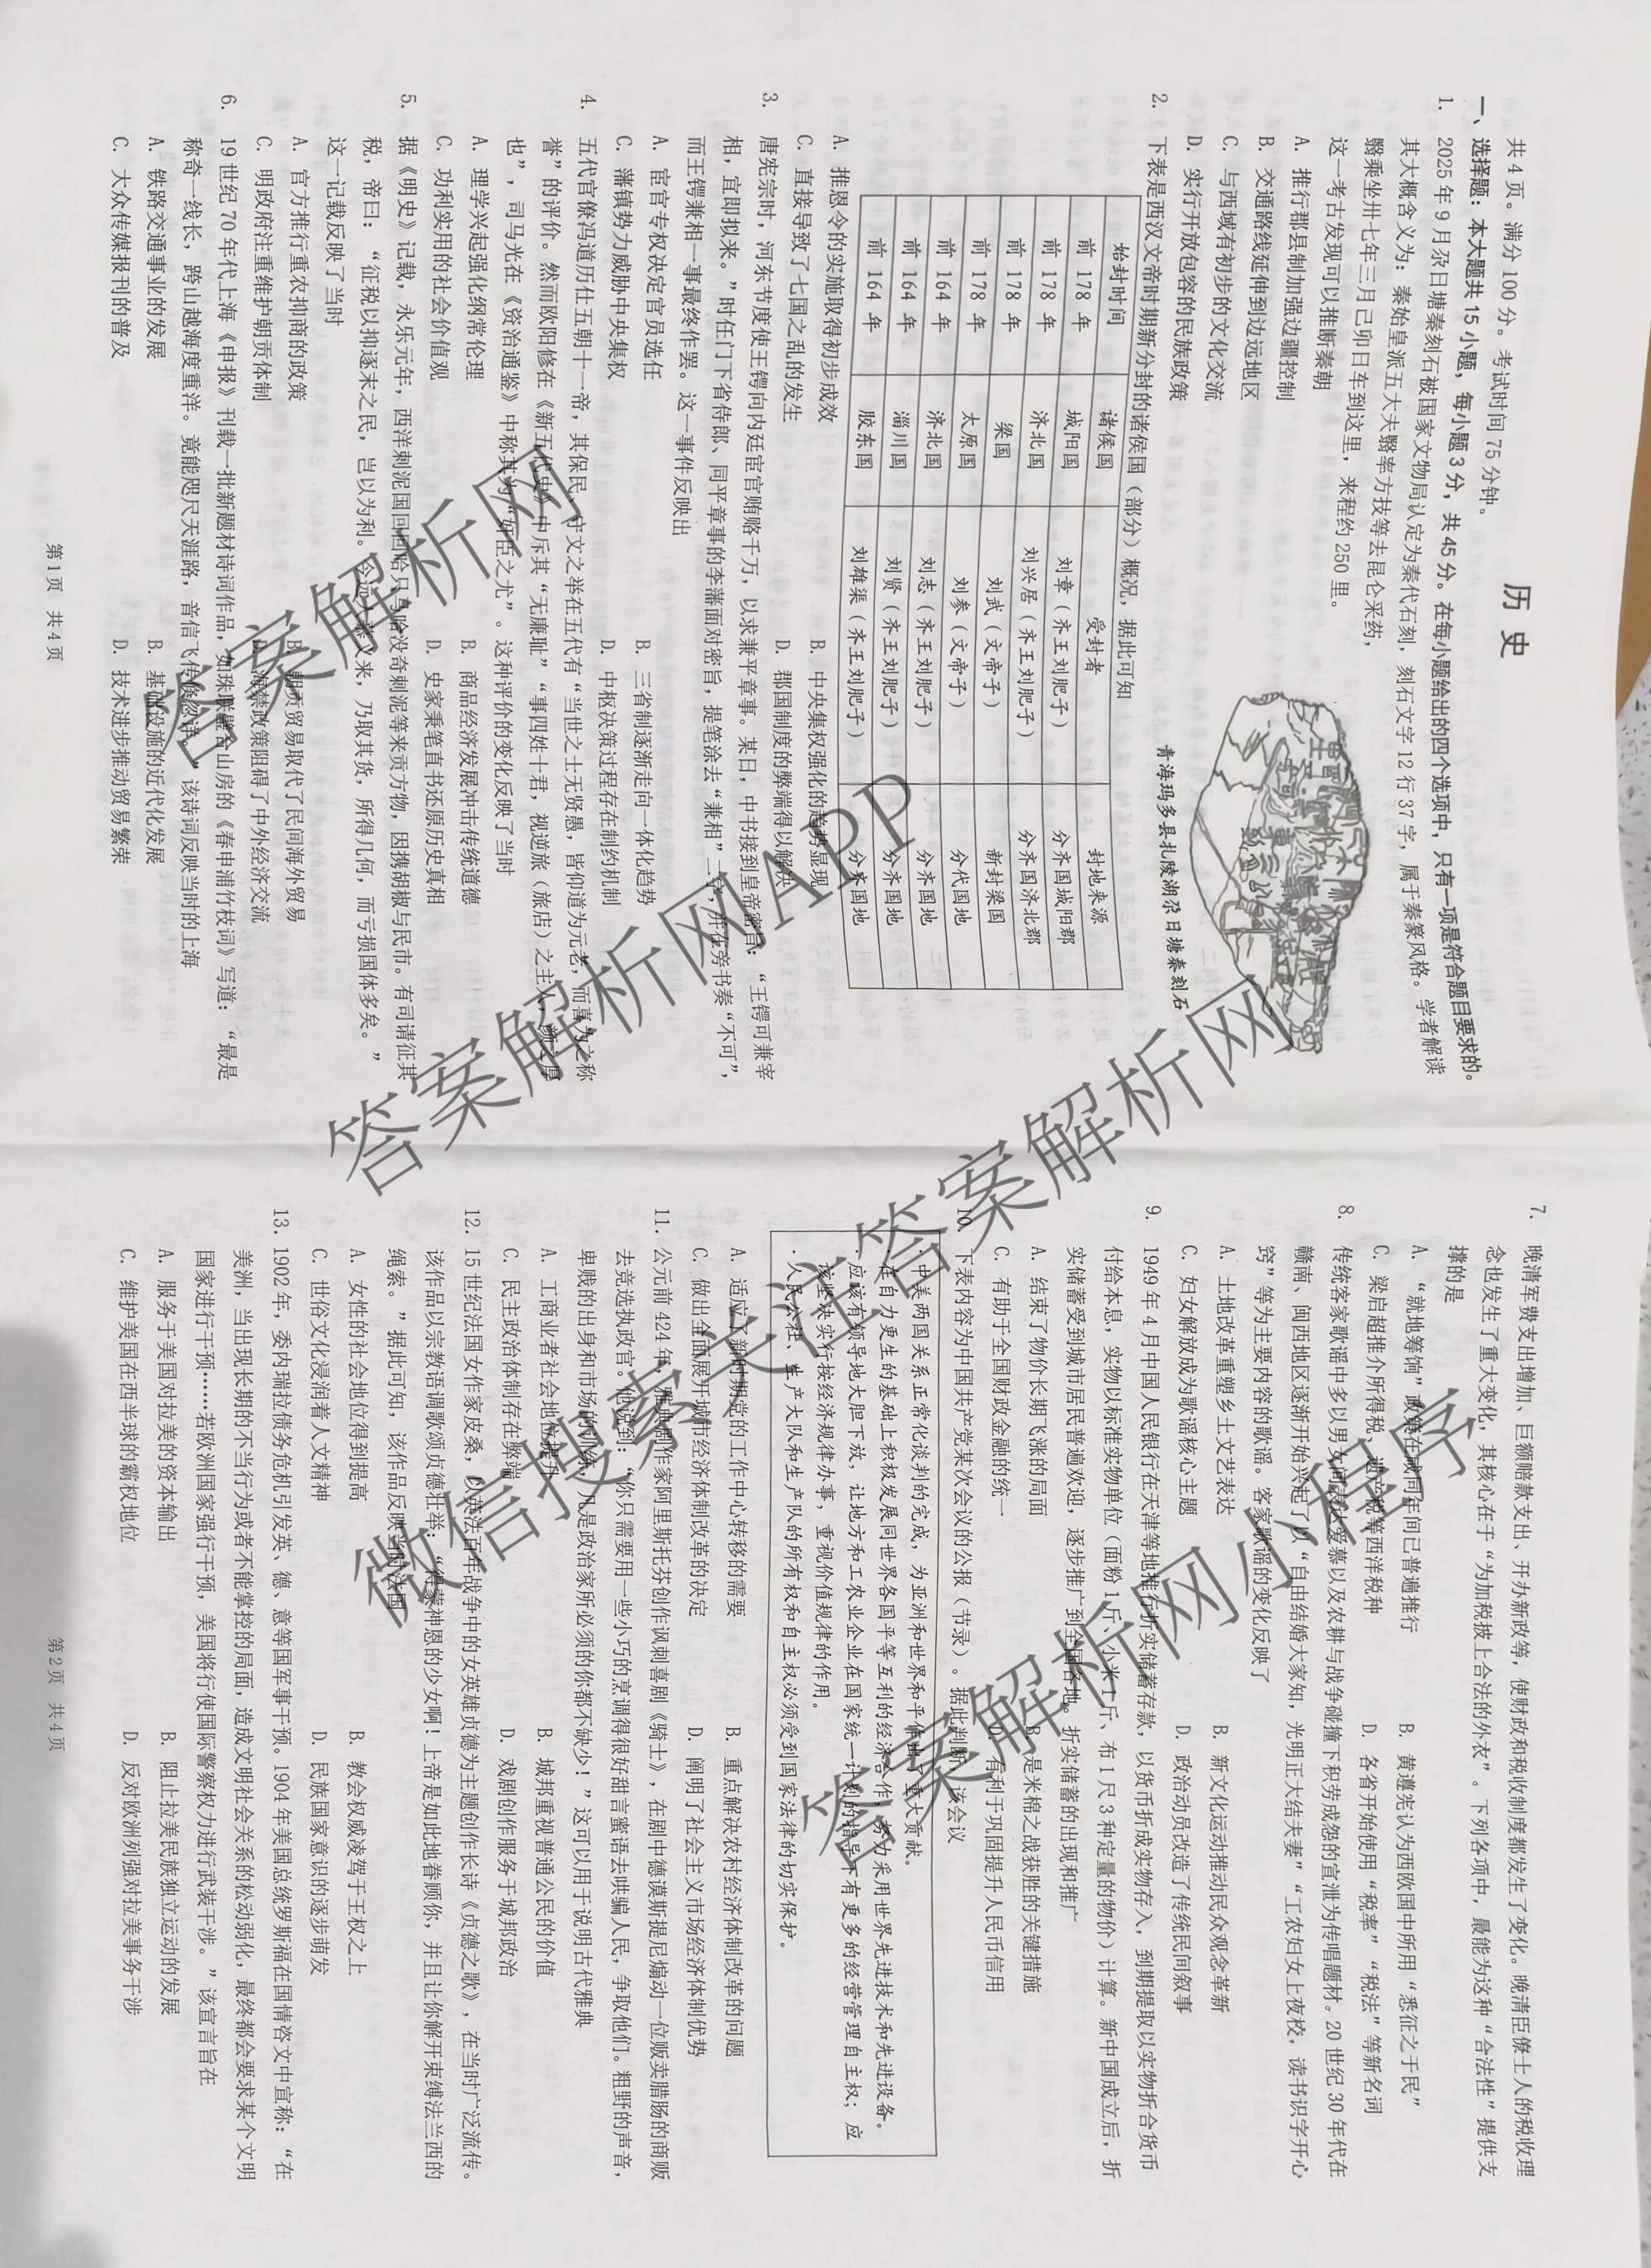 历 史
共 4 页。满分 100 分。考试时间 75 分钟。
一、选择题：本大题共 15 小题，每小题 3 分，共 45 分。在每小题给出的四个选项中，只有一项是符合题目要求的。
1. 2025 年 9 月尕日塘秦刻石被国家文物局认定为秦代石刻，刻石文字 12 行 37 字，属于秦篆风格。学者解读
其大概含义为：秦始皇派五大夫翳率方技等去昆仑采药，
翳乘坐卅七年三月己卯日车到这里，来程约 250 里。
这一考古发现可以推断秦朝
A. 推行郡县制加强边疆控制
B. 交通路线延伸到边远地区
C. 与西域有初步的文化交流
D. 实行开放包容的民族政策
青海玛多县扎陵湖尕日塘秦刻石
2. 下表是西汉文帝时期新分封的诸侯国（部分）概况，据此可知
始封时间 诸侯国 受封者 封地来源
前 178 年 城阳国 刘章（齐王刘肥子） 分齐国城阳郡
前 178 年 济北国 刘兴居（齐王刘肥子） 分齐国济北郡
前 178 年 梁国 刘武（文帝子） 新封梁国
前 178 年 太原国 刘参（文帝子） 分代国地
前 164 年 济北国 刘志（齐王刘肥子） 分齐国地
前 164 年 淄川国 刘贤（齐王刘肥子） 分齐国地
前 164 年 胶东国 刘雄渠（齐王刘肥子） 分齐国地
A. 推恩令的实施取得初步成效 B. 中央集权强化的趋势显现
C. 直接导致了七国之乱的发生 D. 郡国制度的弊端得以解决
3. 唐宪宗时，河东节度使王锷向内廷宦官贿赂千万，以求兼平章事。某日，中书接到皇帝密旨：“王锷可兼宰
相，宜即拟来。”时任门下省侍郎、同平章事的李藩面对密旨，提笔涂去“兼相”二字，并在旁书奏“不可”，
而王锷兼相一事最终作罢。这一事件反映出
A. 宦官专权决定官员选任 B. 三省制逐渐走向一体化趋势
C. 藩镇势力威胁中央集权 D. 中枢决策过程存在制约机制
4. 五代官僚冯道历仕五朝十一帝，其保民、守文之举在五代有“当世之士无贤愚，皆仰道为元老，而喜为之称
誉”的评价。然而欧阳修在《新五代史》中斥其“无廉耻”“事四姓十君，视逆旅（旅店）之主人，颜之厚
也”，司马光在《资治通鉴》中称其为“奸臣之尤”。这种评价的变化反映了当时
A. 理学兴起强化纲常伦理 B. 商品经济发展冲击传统道德
C. 功利实用的社会价值观 D. 史家秉笔直书还原历史真相
5. 据《明史》记载，永乐元年，西洋剌泥国回回哈只马哈没奇剌泥等来贡方物，因携胡椒与民市。有司请征其
税，帝曰：“征税以抑逐末之民，岂以为利。今远人慕义来，乃取其货，所得几何，而亏损国体多矣。”
这一记载反映了当时
A. 官方推行重农抑商的政策 B. 朝贡贸易取代了民间海外贸易
C. 明政府注重维护朝贡体制 D. 海禁政策阻碍了中外经济交流
6. 19 世纪 70 年代上海《申报》刊载一批新题材诗词作品，如珠联璧合山房的《春申浦竹枝词》写道：“最是
称奇一线长，跨山越海度重洋。竟能咫尺天涯路，音信飞传倏忽详。”该诗词反映当时的上海
A. 铁路交通事业的发展 B. 基础设施的近代化发展
C. 大众传媒报刊的普及 D. 技术进步推动贸易繁荣
第 1 页 共 4 页
7. 晚清军费支出增加、巨额赔款支出、开办新政等，使财政和税收制度都发生了变化。晚清臣僚士人的税收理
念也发生了重大变化，其核心在于“为加税披上合法的外衣”。下列各项中，最能为这种“合法性”提供支
撑的是
A. “就地筹饷”政策在咸同年间已普遍推行 B. 黄遵宪认为西欧国中所用“悉征之于民”
C. 梁启超推介所得税、遗产税等西洋税种 D. 各省开始使用“税率”“税法”等新名词
8. 传统客家歌谣中多以男女间表达爱慕以及农耕与战争碰撞下积劳成怨的宣泄为传唱题材。20 世纪 30 年代在
赣南、闽西地区逐渐开始兴起了以“自由结婚大家知，光明正大结夫妻”“工农妇女上夜校，读书识字开心
窍”等为主要内容的歌谣。客家歌谣的变化反映了
A. 土地改革重塑乡土文艺表达 B. 新文化运动推动民众观念革新
C. 妇女解放成为歌谣核心主题 D. 政治动员改造了传统民间叙事
9. 1949 年 4 月中国人民银行在天津等地推行折实储蓄存款，以货币折成实物存入，到期提取以实物折合货币
付给本息，实物以标准实物单位（面粉 1 斤、小米 1 斤、布 1 尺 3 种定量的物价）计算。新中国成立后，折
实储蓄受到城市居民普遍欢迎，逐步推广到全国各地。折实储蓄的出现和推广
A. 结束了物价长期飞涨的局面 B. 是米棉之战获胜的关键措施
C. 有助于全国财政金融的统一 D. 有利于巩固提升人民币信用
10. 下表内容为中国共产党某次会议的公报（节录）。据此判断，该会议
·中美两国关系正常化谈判的完成，为亚洲和世界和平作出了重大贡献。
·在自力更生的基础上积极发展同世界各国平等互利的经济合作，努力采用世界先进技术和先进设备。
·应该有领导地大胆下放，让地方和工农业企业在国家统一计划的指导下有更多的经营管理自主权；应
该坚决实行按经济规律办事，重视价值规律的作用。
·人民公社、生产大队和生产队的所有权和自主权必须受到国家法律的切实保护。
A. 适应了新时期党的工作中心转移的需要 B. 重点解决农村经济体制改革的问题
C. 做出全面展开城市经济体制改革的决定 D. 阐明了社会主义市场经济体制优势
11. 公元前 424 年，雅典剧作家阿里斯托芬创作讽刺喜剧《骑士》，在剧中德谟斯提尼煽动一位贩卖腊肠的商贩
去竞选执政官。他说到：“你只需要用一些小巧的烹调得很好甜言蜜语去哄骗人民，争取他们。粗野的声音，
卑贱的出身和市场的训练，凡是政治家所必须的你都不缺少！”这可以用于说明古代雅典
A. 工商业者社会地位提升 B. 城邦重视普通公民的价值
C. 民主政治体制存在弊端 D. 戏剧创作服务于城邦政治
12. 15 世纪法国女作家皮桑，以英法百年战争中的女英雄贞德为主题创作长诗《贞德之歌》，在当时广泛流传。
该作品以宗教语调歌颂贞德壮举：“得蒙神恩的少女啊！上帝是如此地眷顾你，并且让你解开束缚法兰西的
绳索。”据此可知，该作品反映当时法国
A. 女性的社会地位得到提高 B. 教会权威凌驾于王权之上
C. 世俗文化浸润着人文精神 D. 民族国家意识的逐步萌发
13. 1902 年，委内瑞拉债务危机引发英、德、意等国军事干预。1904 年美国总统罗斯福在国情咨文中宣称：“在
美洲，当出现长期的不当行为或者不能掌控的局面，造成文明社会关系的松动弱化，最终都会要求某个文明
国家进行干预……若欧洲国家强行干预，美国将行使国际警察权力进行武装干涉。”该宣言旨在
A. 服务于美国对拉美的资本输出 B. 阻止拉美民族独立运动的发展
C. 维护美国在西半球的霸权地位 D. 反对欧洲列强对拉美事务干涉
第 2 页 共 4 页
答案解析网
答案解析网APP
微信搜索关注答案解析网
答案解析网小程序